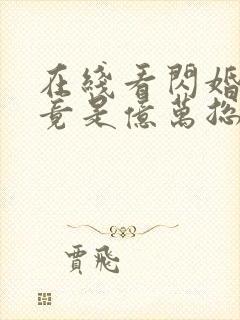 在綫看閃婚
竟是億萬總
賈飛